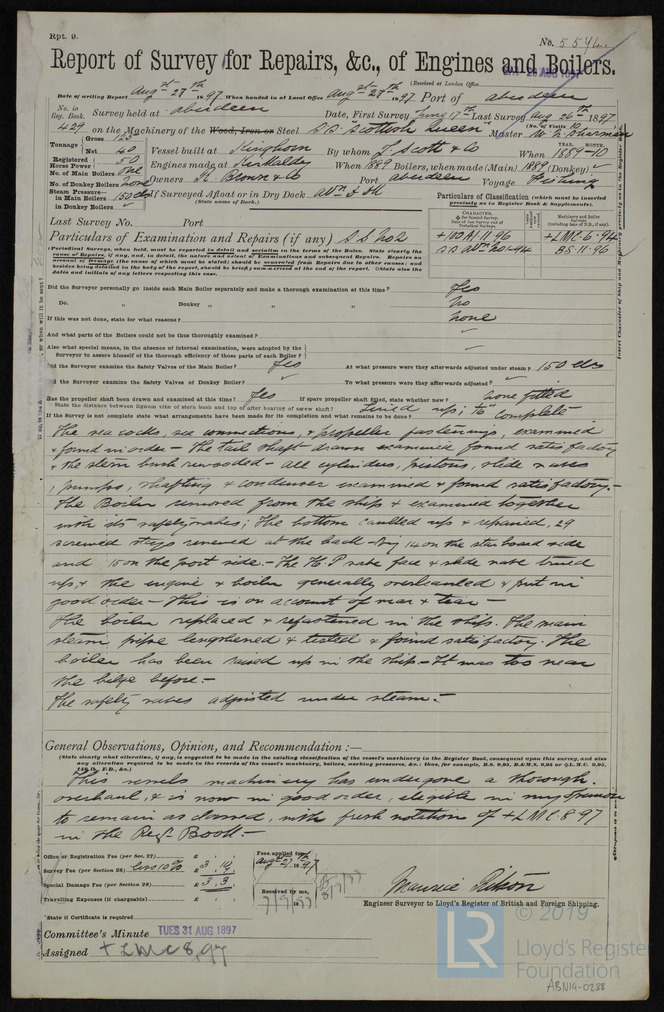 Rpt. 9.
No. 554
Report of Survey for Repairs, &c., of Engines and Boilers.
(Received at London Office
AUG 1897
Date of writing Report Aug 27th 1897 When handed in at Local Office Aug 27th 1897 Port of Aberdeen
No. in Reg. Book. Survey held at Aberdeen Date, First Survey June 17th Last Survey Aug 26th 1897
(No. of Visits 10)
429 on the Machinery of the Wood, Iron or Steel S.S. Scottish Queen Master
Tonnage Gross 125
Net 40
Vessel built at Kinghorn By whom J. Scott & Co When 1889-10
Registered Horse Power 50 Engines made at Kirkcaldy When 1889 Boilers, when made (Main) 1889 (Donkey) ✓
No. of Main Boilers One
No. of Donkey Boilers None Owners Brown & Co Port Aberdeen Voyage Fishing
Steam Pressure in Main Boilers 150 lbs If Surveyed Afloat or in Dry Dock
(State name of Dock.)
in Donkey Boilers
Last Survey No. Port
Particulars of Classification (which must be inserted precisely as in Register Book & Supplements).
CHARACTER.
Machinery and Boiler Surveys
(including date of N.B., if any).
+100A1.11.96
+LMC.6.94
BS.11.96
Particulars of Examination and Repairs (if any) S.S. No 2
(Periodical Surveys, when held, must be reported in detail and seriatim in the terms of the Rules. State clearly the cause of Repairs, if any, and, in detail, the nature and extent of Examinations and subsequent Repairs. Repairs on account of Damage (the cause of which must be stated) should be separated from Repairs due to other causes; and besides being detailed in the body of the report, should be briefly summarised at the end of the report. State also the dates and initials of any letters respecting this case.
Did the Surveyor personally go inside each Main Boiler separately and make a thorough examination at this time? Yes
Do. " Donkey " " " No
If this was not done, state for what reasons? None
And what parts of the Boilers could not be thus thoroughly examined?
Also what special means, in the absence of internal examination, were adopted by the Surveyor to assure himself of the thorough efficiency of those parts of each Boiler?
Did the Surveyor examine the Safety Valves of the Main Boiler? Yes At what pressure were they afterwards adjusted under steam? 150 lbs
Did the Surveyor examine the Safety Valves of Donkey Boiler? ✓ To what pressure were they afterwards adjusted? ✓
Has the propeller shaft been drawn and examined at this time? Yes If spare propeller shaft fitted, state whether new? none fitted
State the distance between lignum vitæ of stern bush and top of after bearing of screw shaft? Lined up; to complete
If the Survey is not complete state what arrangements have been made for its completion and what remains to be done?
The sea cocks, sea connections, & propeller fastenings, examined
& found in order - The tail shaft drawn examined found satisfactory
& the stern bush rewooded - all cylinders, pistons, slide valves
, pumps, shafting & condenser examined & found satisfactory. -
The Boiler removed from the ship & examined together
with its safety valves; The bottom caulked up & repaired, 29
screwed stays renewed at the back - Viz 14 on the starboard side
and 15 on the port side. - The H.P valve face & slide valve trued
up, & the engine & boiler generally overhauled & put in
good order - This is on account of wear & tear -
The boiler replaced & refastened in the ship. The main
steam pipe lengthened & tested & found satisfactory. The
boiler has been raised up in the ship. - It was too near
the bilge before. -
The safety valves adjusted under steam. -
General Observations, Opinion, and Recommendation :—
(State clearly what alteration, if any, is suggested to be made in the existing classification of the vessel's machinery in the Register Book, consequent upon this survey, and also any alteration required to be made in the records of the vessel's machinery, boilers, working pressures, &c.: thus, for example, B.S. 9,95, B.&M.S. 9,95 or +L.M.C. 9,95, F.D., &c.)
This vessels machinery has undergone a thorough
overhaul, & is now in good order, eligible in my opinion
to remain as classed, with fresh notation of +LMC.8.97
in the Reg. Book. -
Office or Registration Fee (per Sec. 27) £
Survey Fee (per Section 28) less 10% £ 3 . 10
Special Damage Fee (per Section 28) £ 3 . 3
Travelling Expenses (if chargeable) £
Fees applied for,
Aug 27th 1897
Received by me,
7/9/97
Maurice Ritson
Engineer Surveyor to Lloyd's Register of British and Foreign Shipping.
State if Certificate is required
Committee's Minute TUES 31 AUG 1897
Assigned +LMC 8,97
© 2019
LR
Lloyd's Register
Foundation
ABN14-0288